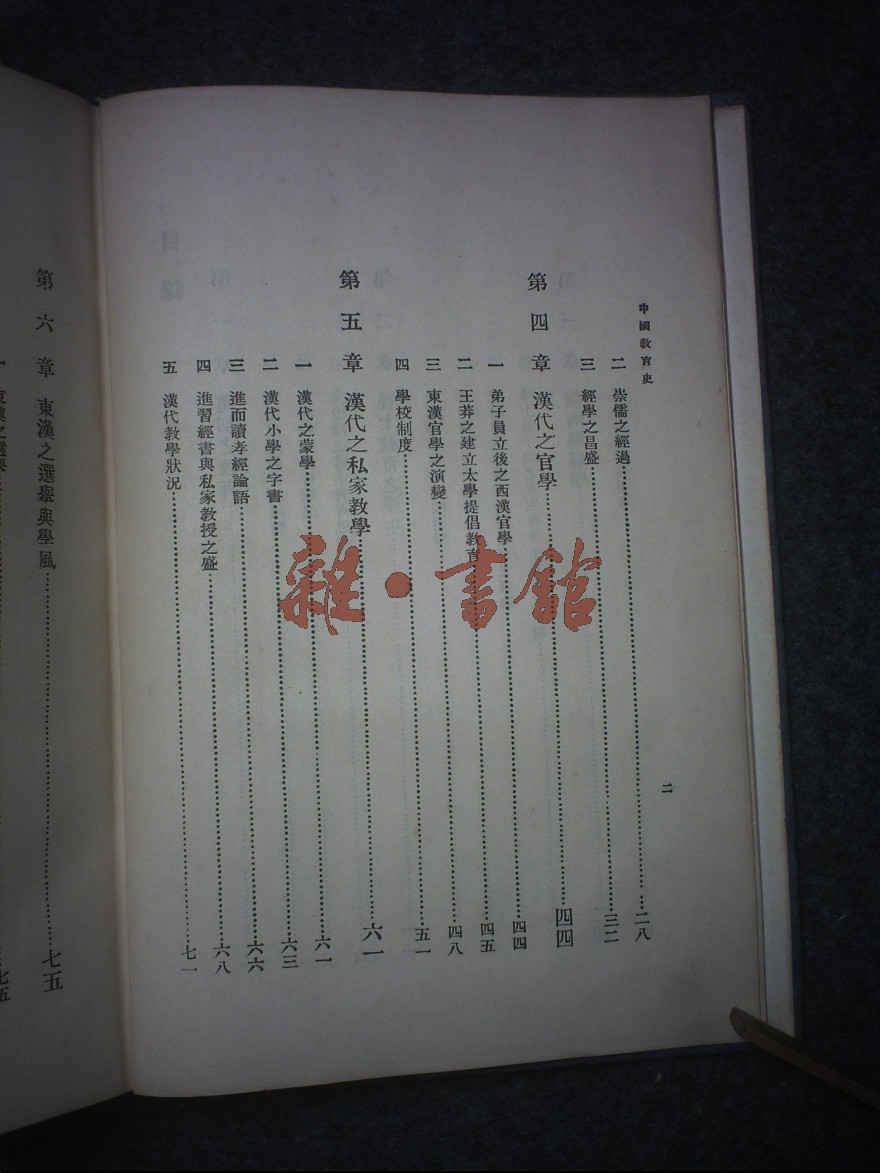 中國教育史
二
二 崇儒之經過……二八
三 經學之昌盛……三二
第四章 漢代之官學……四四
一 弟子員立後之西漢官學……四四
二 王莽之建立太學提倡教育……四五
三 東漢官學之演變……四八
四 學校制度……五一
第五章 漢代之私家教學……六一
一 漢代之蒙學……六一
二 漢代小學之字書……六三
三 進而讀孝經論語……六六
四 進習經書與私家教授之盛……六八
五 漢代教學狀況……七一
第六章 東漢之選舉與學風……七五
一 東漢之選舉……七五
雜·書館